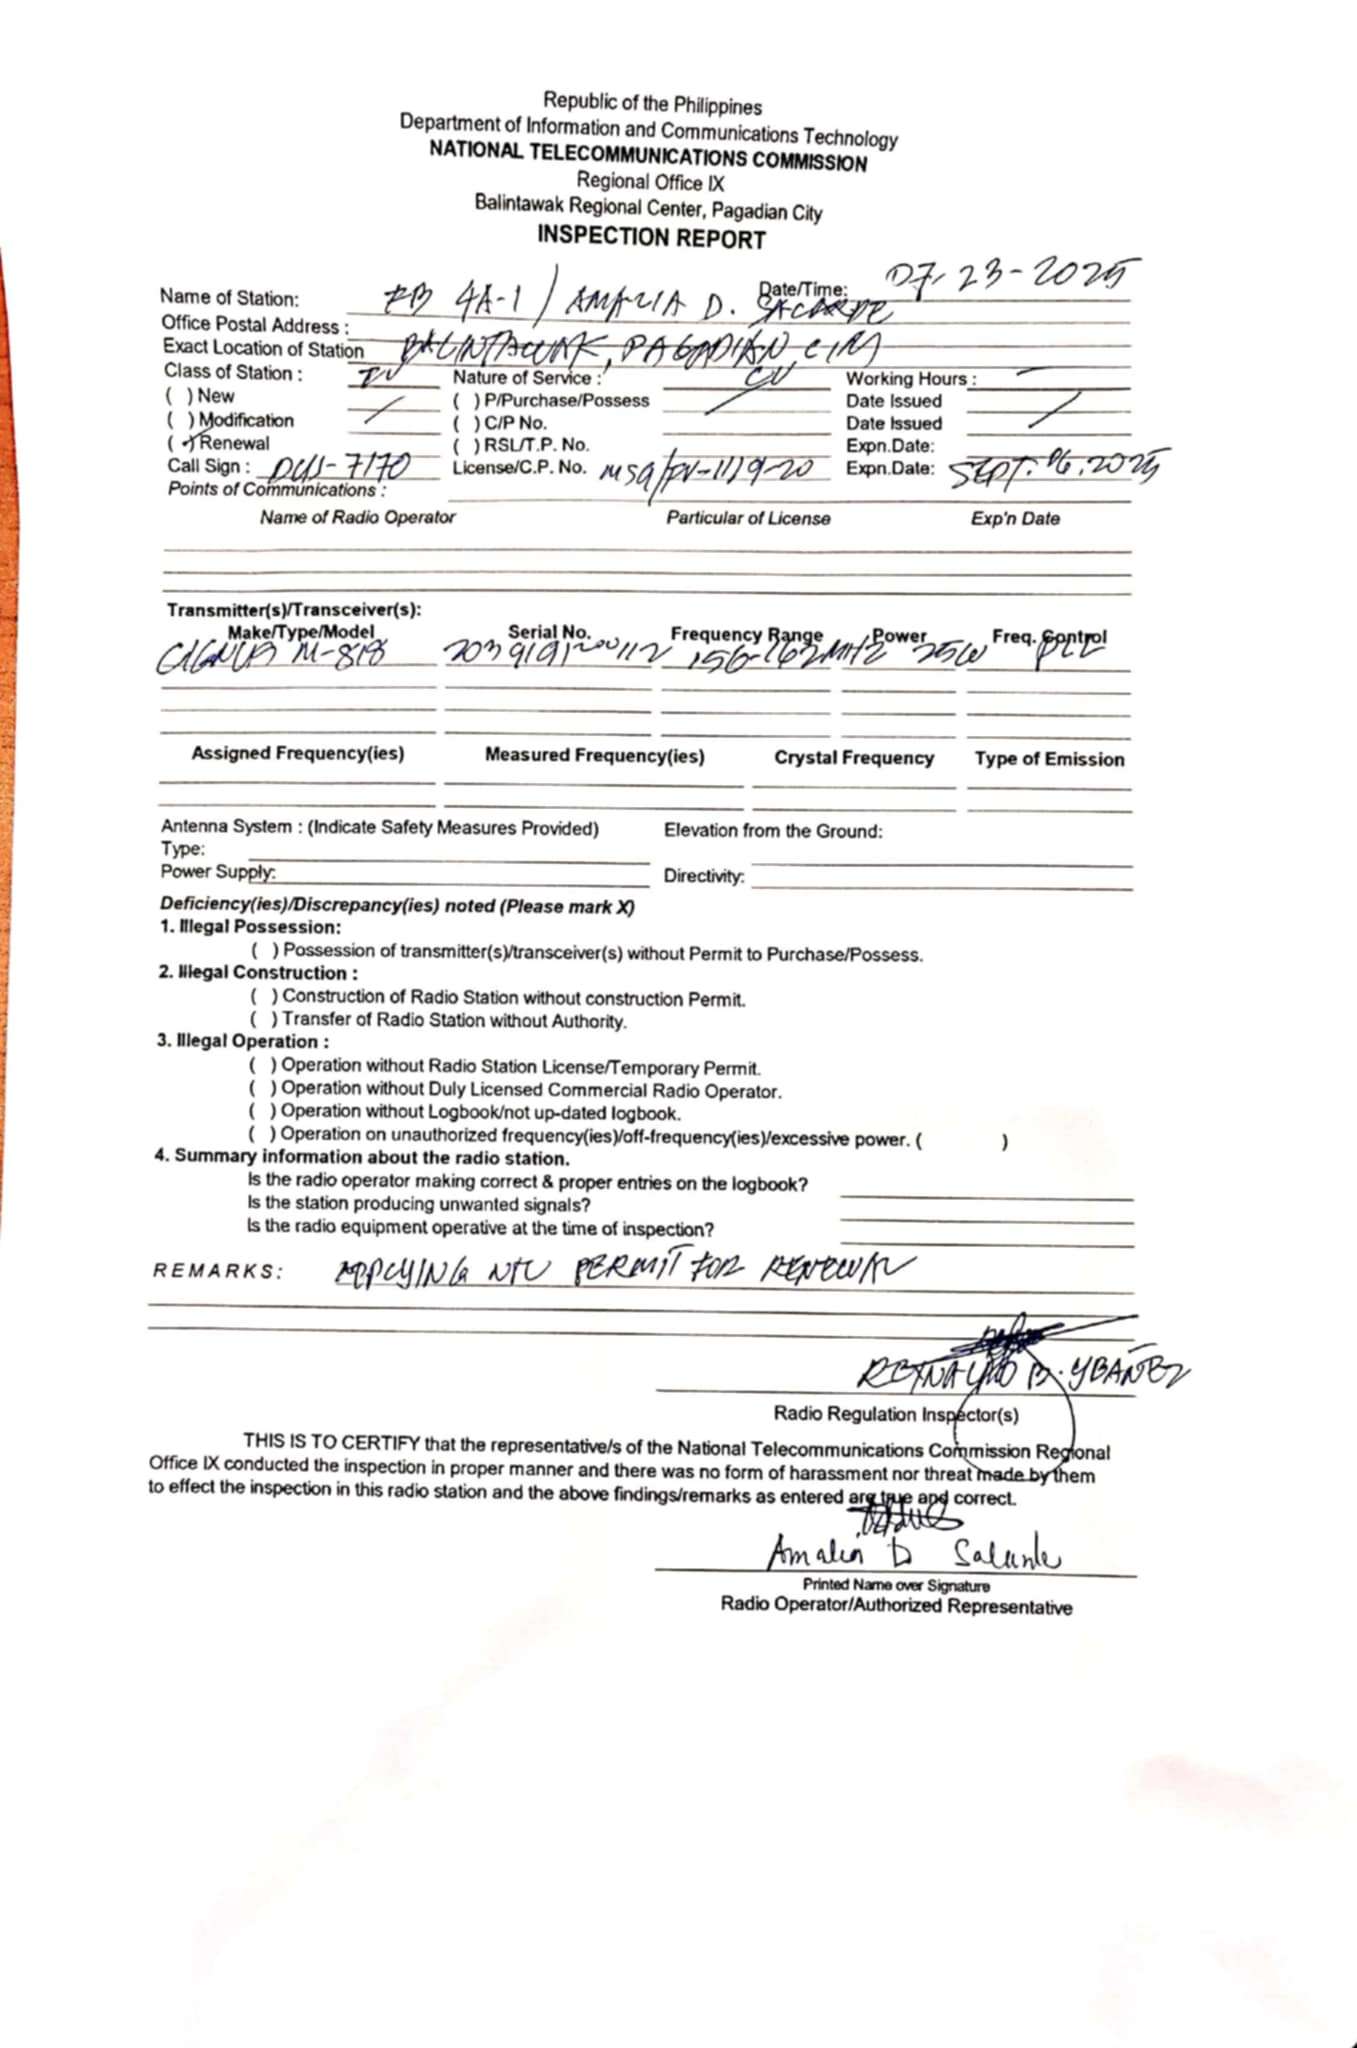 Republic of the Philippines
Department of Information and Communications Technology
NATIONAL TELECOMMUNICATIONS COMMISSION
Regional Office IX
Balintawak Regional Center, Pagadian City
INSPECTION REPORT
Date/Time: 07-23-2025
Name of Station: FB 4A-1 / AMALIA D.
Office Postal Address :
Exact Location of Station BALINTAWAK, PAGADIAN CITY
Class of Station : Nature of Service : CV Working Hours : —
( ) New / ( ) P/Purchase/Possess / Date Issued /
( ) Modification ( ) C/P No. Date Issued
(✓) Renewal ( ) RSL/T.P. No. Expn.Date:
Call Sign : -7170 License/C.P. No. Expn.Date: SEPT. 06, 2025
Points of Communications :
Name of Radio Operator Particular of License Exp'n Date
Transmitter(s)/Transceiver(s):
Make/Type/Model Serial No. Frequency Range Power Freq. Control
CIGNUS M-818 156-162MHZ 25W PLL
Assigned Frequency(ies) Measured Frequency(ies) Crystal Frequency Type of Emission
Antenna System : (Indicate Safety Measures Provided) Elevation from the Ground:
Type:
Power Supply: Directivity:
Deficiency(ies)/Discrepancy(ies) noted (Please mark X)
1. Illegal Possession:
( ) Possession of transmitter(s)/transceiver(s) without Permit to Purchase/Possess.
2. Illegal Construction :
( ) Construction of Radio Station without construction Permit.
( ) Transfer of Radio Station without Authority.
3. Illegal Operation :
( ) Operation without Radio Station License/Temporary Permit.
( ) Operation without Duly Licensed Commercial Radio Operator.
( ) Operation without Logbook/not up-dated logbook.
( ) Operation on unauthorized frequency(ies)/off-frequency(ies)/excessive power. ( )
4. Summary information about the radio station.
Is the radio operator making correct & proper entries on the logbook?
Is the station producing unwanted signals?
Is the radio equipment operative at the time of inspection?
REMARKS: APPLYING NTC PERMIT FOR RENEWAL
REYNALDO B. YBAÑEZ
Radio Regulation Inspector(s)
THIS IS TO CERTIFY that the representative/s of the National Telecommunications Commission Regional
Office IX conducted the inspection in proper manner and there was no form of harassment nor threat made by them
to effect the inspection in this radio station and the above findings/remarks as entered are true and correct.
Amalia D
Printed Name over Signature
Radio Operator/Authorized Representative